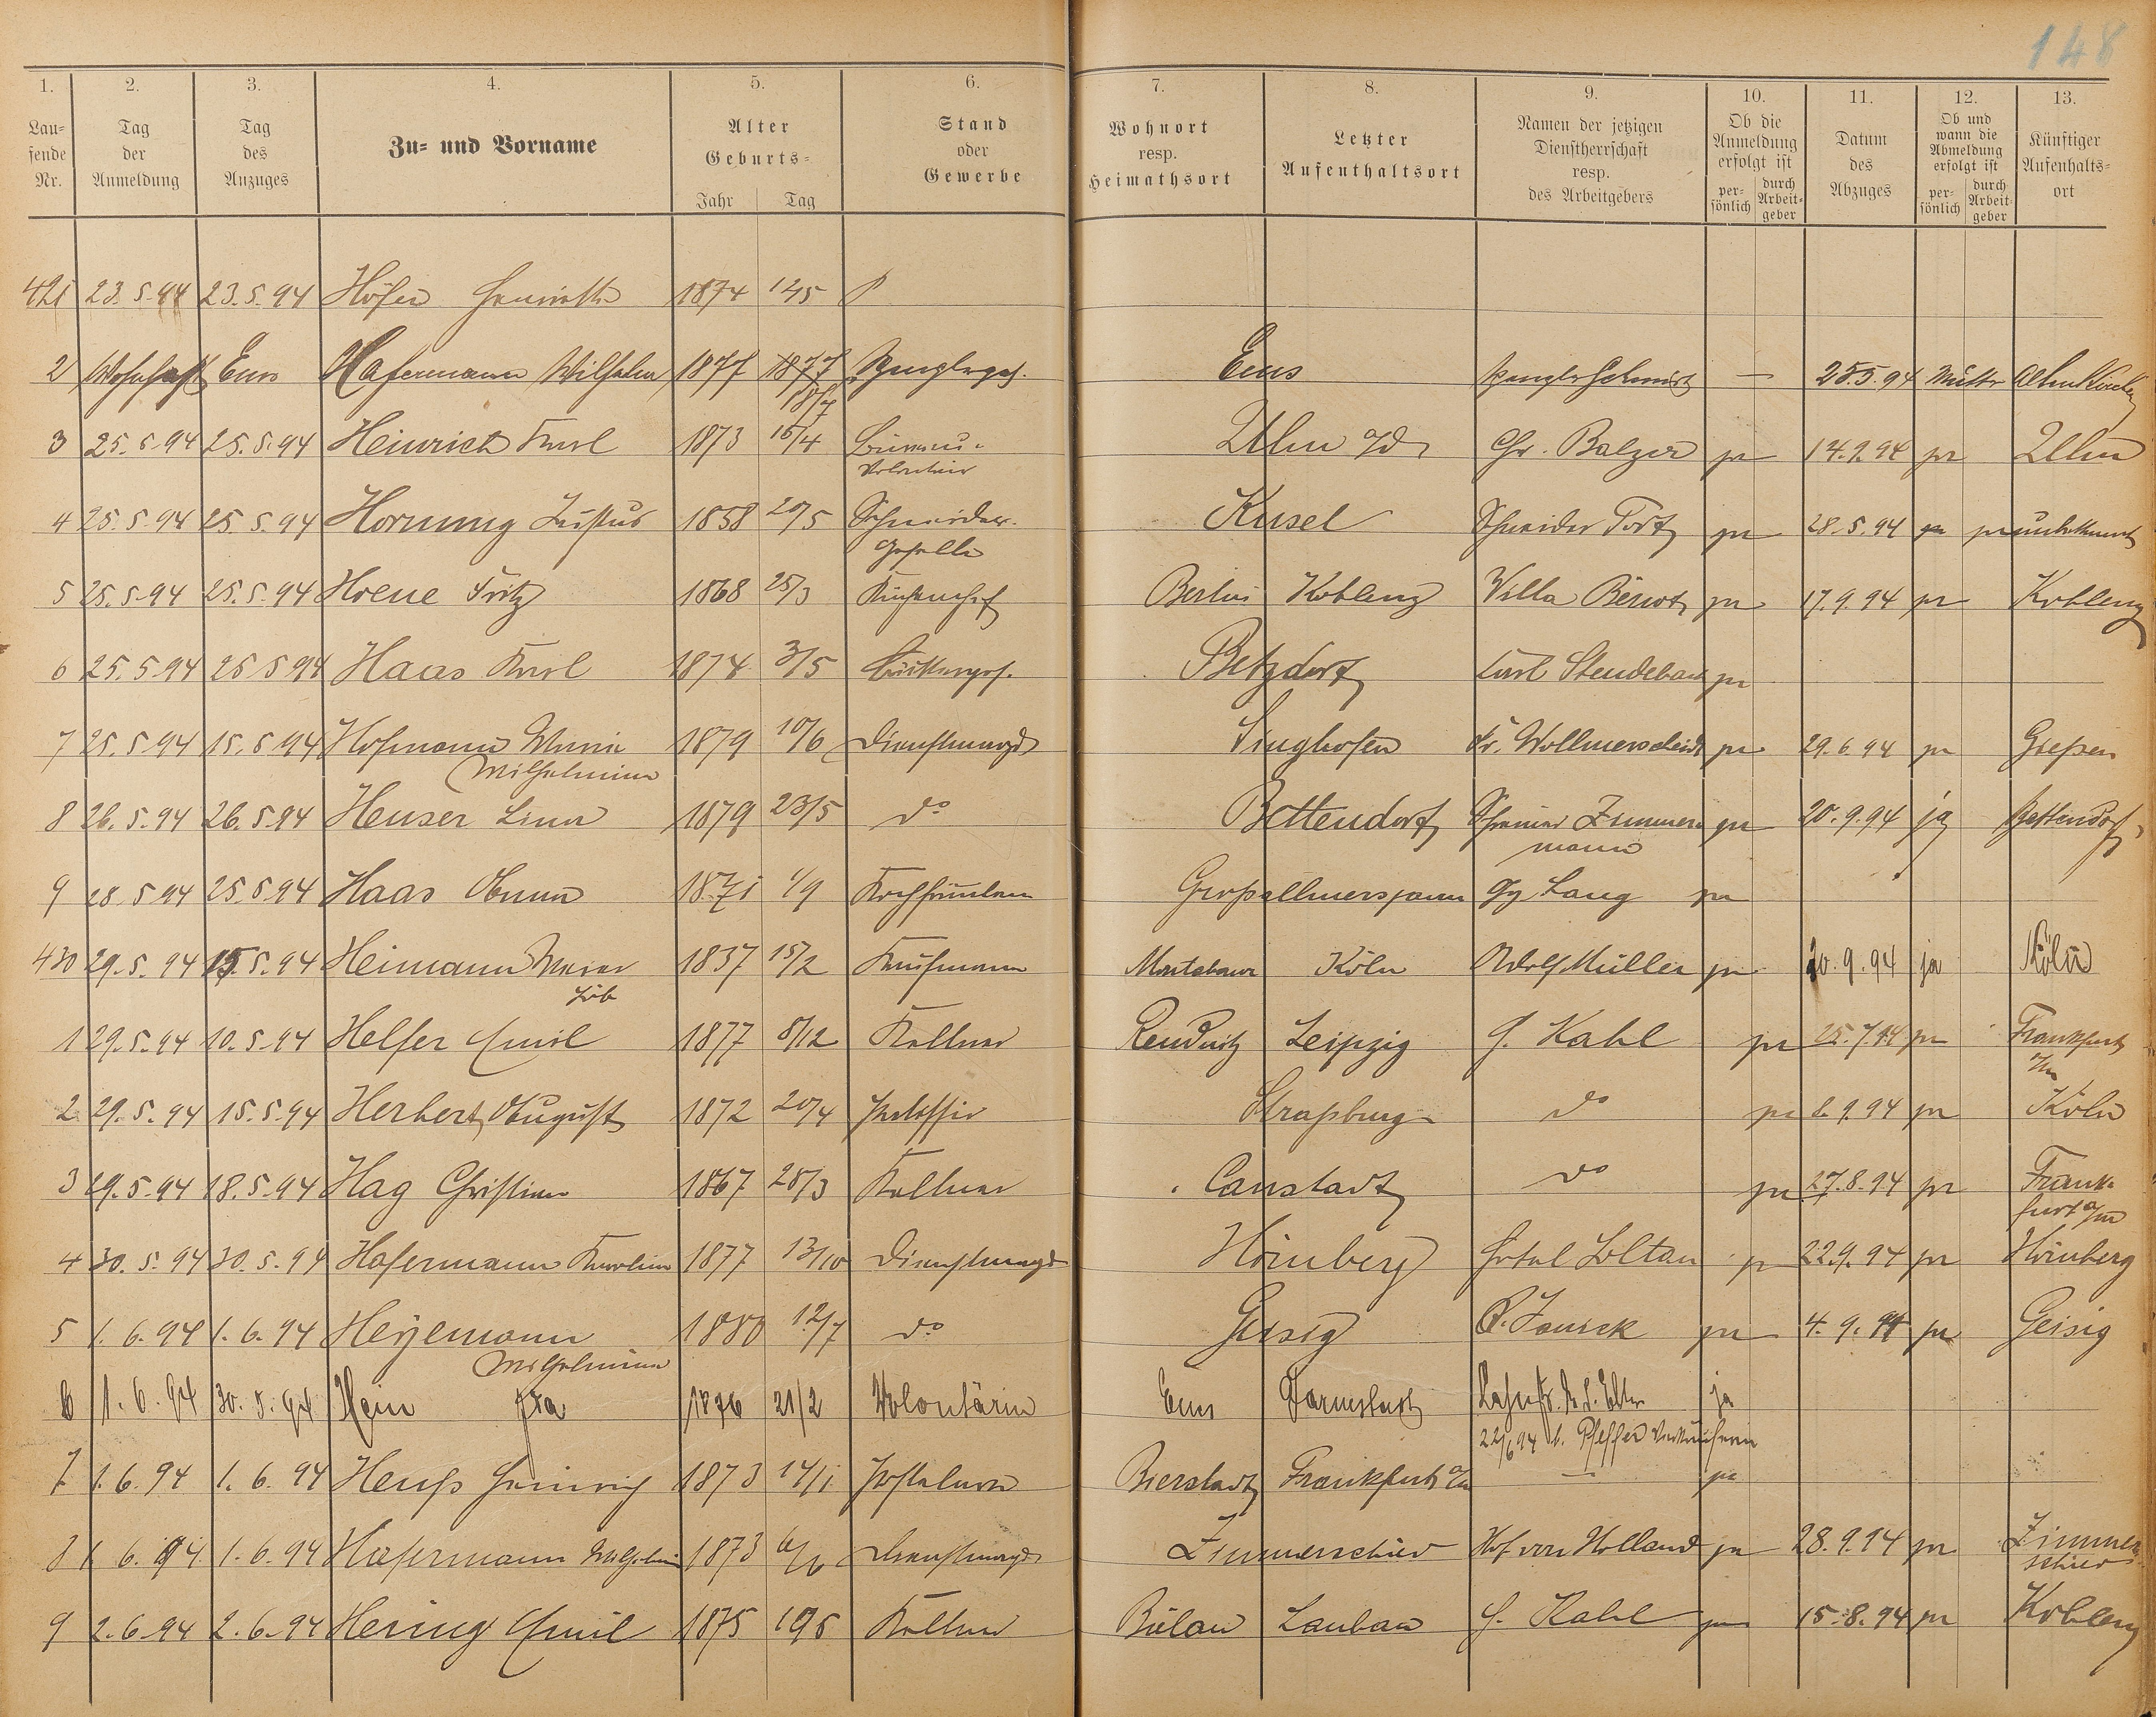 148
1. 2. 3. 4. 5. 6. 7. 8. 9. 10. 11. 12. 13.
Lau-
fende
Nr.
Tag
der
Anmeldung
Tag
des
Anzuges
Zu- und Vorname
Alter
Geburts-
Jahr Tag
Stand
oder
Gewerbe
Wohnort
resp.
Heimathsort
Letzter
Aufenthaltsort
Namen der jetzigen
Dienstherrschaft
resp.
des Arbeitgebers
Ob die
Anmeldung
erfolgt ist
per-
sönlich
durch
Arbeit-
geber
Datum
des
Abzuges
Ob und
wann die
Abmeldung
erfolgt ist
per-
sönlich
durch
Arbeit-
geber
Künftiger
Aufenthalts-
ort
421 23.5.94 23.5.94 Höfer 1874 12/5
2 Wohnhaft Ems Hafermann Wilhelm 1877 1877 Spenglerges. Ems Spengler Schmidt — 25.5.94 Mutter
18/7
3 25.5.94 25.5.94 Heinrich Karl 1873 16/4 Ulm a/d Chr. Balzer ja 14.9.94 ja Ulm
Volontair
4 25.5.94 25.5.94 Hornung Justus 1858 20/5 Schneider- Kusel Schneider 28.5.94 ja unbekannt
Geselle
5 25.5.94 25.5.94 Hoene Fritz 1868 25/3 Küchenchef Berlin Koblenz Villa ja 17.9.94 ja Koblenz
6 25.5.94 25.5.94 Haas Karl 1874 3/5 Betzdorf Carl Stendebach ja
7 25.5.94 15.5.94 Hofmann Maria 1879 10/6 Dienstmagd Singhofen Fr. Wollmerscheidt ja 29.6.94 ja Gießen
Wilhelmine
8 26.5.94 26.5.94 Heuser Lina 1879 23/5 do Bettendorf Schreiner Zimmer- ja 20.9.94 ja Bettendorf
mann
9 28.5.94 25.5.94 Haas Anna 1871 1/9 Kochfräulein Großallmerspann Gg Lang ja
430 29.5.94 15.5.94 Heimann 1837 15/2 Kaufmann Montabaur Köln Adolf Müller ja 30.9.94 ja Köln
Löb
1 29.5.94 10.5.94 Helfer Emil 1877 8/12 Kellner Reudnitz Leipzig G. Kahl ja 25.7.94 ja Frankfurt
a/M
2 29.5.94 15.5.94 Herbert August 1872 20/4 Patissier Straßburg do ja 9.94 ja Köln
3 29.5.94 18.5.94 Hag Christian 1867 28/3 Kellner Canstadt do ja 27.8.94 ja Frank-
furt a/M
4 30.5.94 30.5.94 Hafermann Karoline 1877 13/10 Dienstmagd Hömberg Hotel Loltan ja 22.9.94 ja Hömberg
5 1.6.94 1.6.94 Heyemann 1880 12/7 do Geisig ja 4.9.94 ja Geisig
Wilhelmine
6 1.6.94 30.5.94 Hein 1876 21/2 Volontärin Ems Darmstadt Lahnstr. ja
22/6 94 b. Pfeffer Verkäuferin
7 1.6.94 1.6.94 Heuß Heinrich 1873 14/1 Bierstadt Frankfurt a/M — ja
8 1.6.94 1.6.94 Hafermann Wilhelmine 1873 Dienstmagd Zimmerschied Hof von Holland ja 28.9.94 ja Zimmer-
schied
9 2.6.94 2.6.94 Hering Emil 1875 Kellner Bülau Lauban G. Kahl ja 15.8.94 ja Koblenz